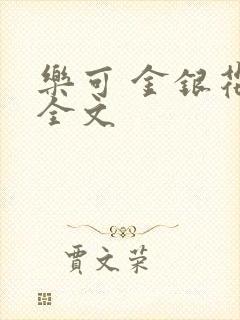 樂可 金銀花
全文
賈文荣